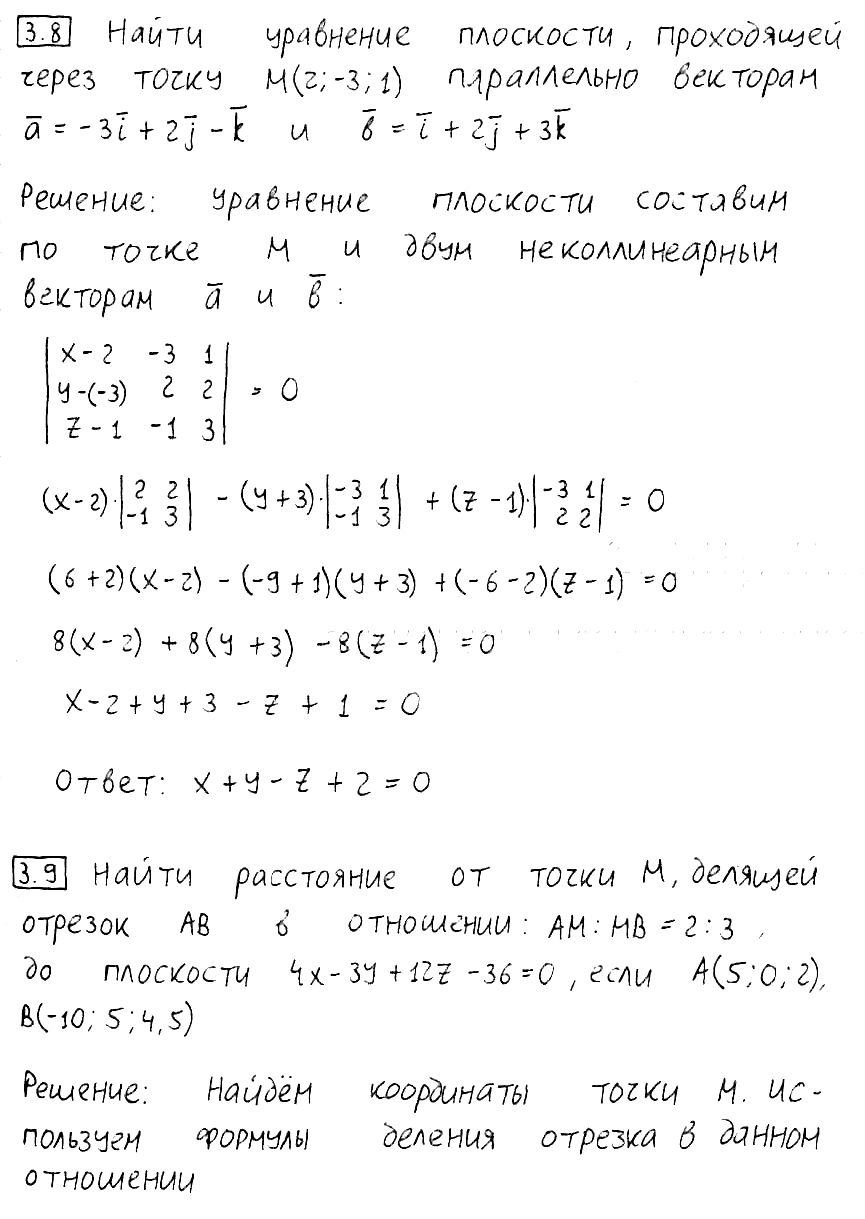 3.8 Найти уравнение плоскости, проходящей
через точку M(2;-3;1) параллельно векторам
a̅ = -3i̅ + 2j̅ - k̅ и b̅ = i̅ + 2j̅ + 3k̅
Решение: уравнение плоскости составим
по точке M и двум неколлинеарным
векторам a̅ и b̅:
|x-2 -3 1|
|y-(-3) 2 2| = 0
|z-1 -1 3|
(x-2)·|2 2; -1 3| - (y+3)·|-3 1; -1 3| + (z-1)·|-3 1; 2 2| = 0
(6+2)(x-2) - (-9+1)(y+3) + (-6-2)(z-1) = 0
8(x-2) + 8(y+3) - 8(z-1) = 0
x-2+y+3-z+1 = 0
Ответ: x+y-z+2=0
3.9 Найти расстояние от точки M, делящей
отрезок AB в отношении: AM:MB = 2:3,
до плоскости 4x-3y+12z-36=0, если A(5;0;2),
B(-10;5;4,5)
Решение: Найдём координаты точки M. Ис-
пользуем формулы деления отрезка в данном
отношении